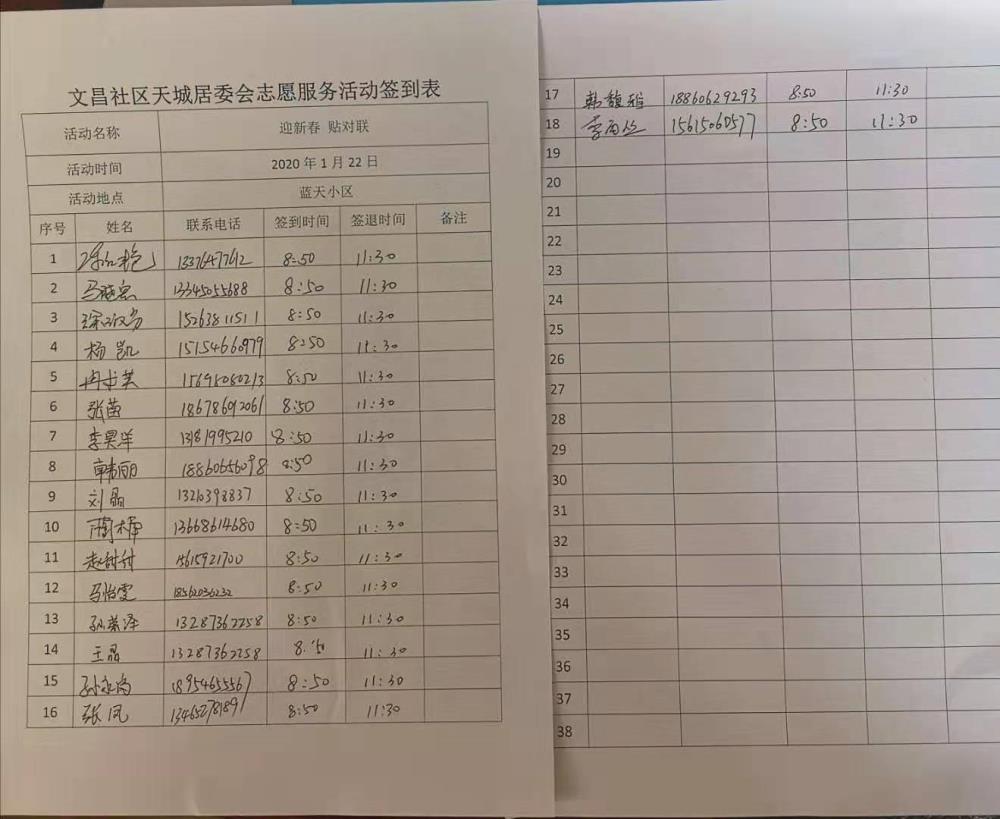 文昌社区天城居委会志愿服务活动签到表
活动名称 迎新春 贴对联
活动时间 2020 年 1 月 22 日
活动地点 蓝天小区
序号 姓名 联系电话 签到时间 签退时间 备注
1 13376477612 8:50 11:30
2 13345055688 8:50 11:30
3 15263811511 8:50 11:30
4 杨凯 15154660979 8:50 11:30
5 8:50 11:30
6 张茵 18678692061 8:50 11:30
7 李昊洋 13181995210 8:50 11:30
8 韩丽 18860656098 8:50 11:30
9 刘晶 13210398837 8:50 11:30
10 13668614680 8:50 11:30
11 赵甜甜 15615921700 8:50 11:30
12 马怡雯 18562036232 8:50 11:30
13 孙荣泽 13287362258 8:50 11:30
14 王晶 13287362258 8:50 11:30
15 18954655567 8:50 11:30
16 张凤 13465278189 8:50 11:30
17 韩馥雅 18860629293 8:50 11:30
18 15615060577 8:50 11:30
19
20
21
22
23
24
25
26
27
28
29
30
31
32
33
34
35
36
37
38